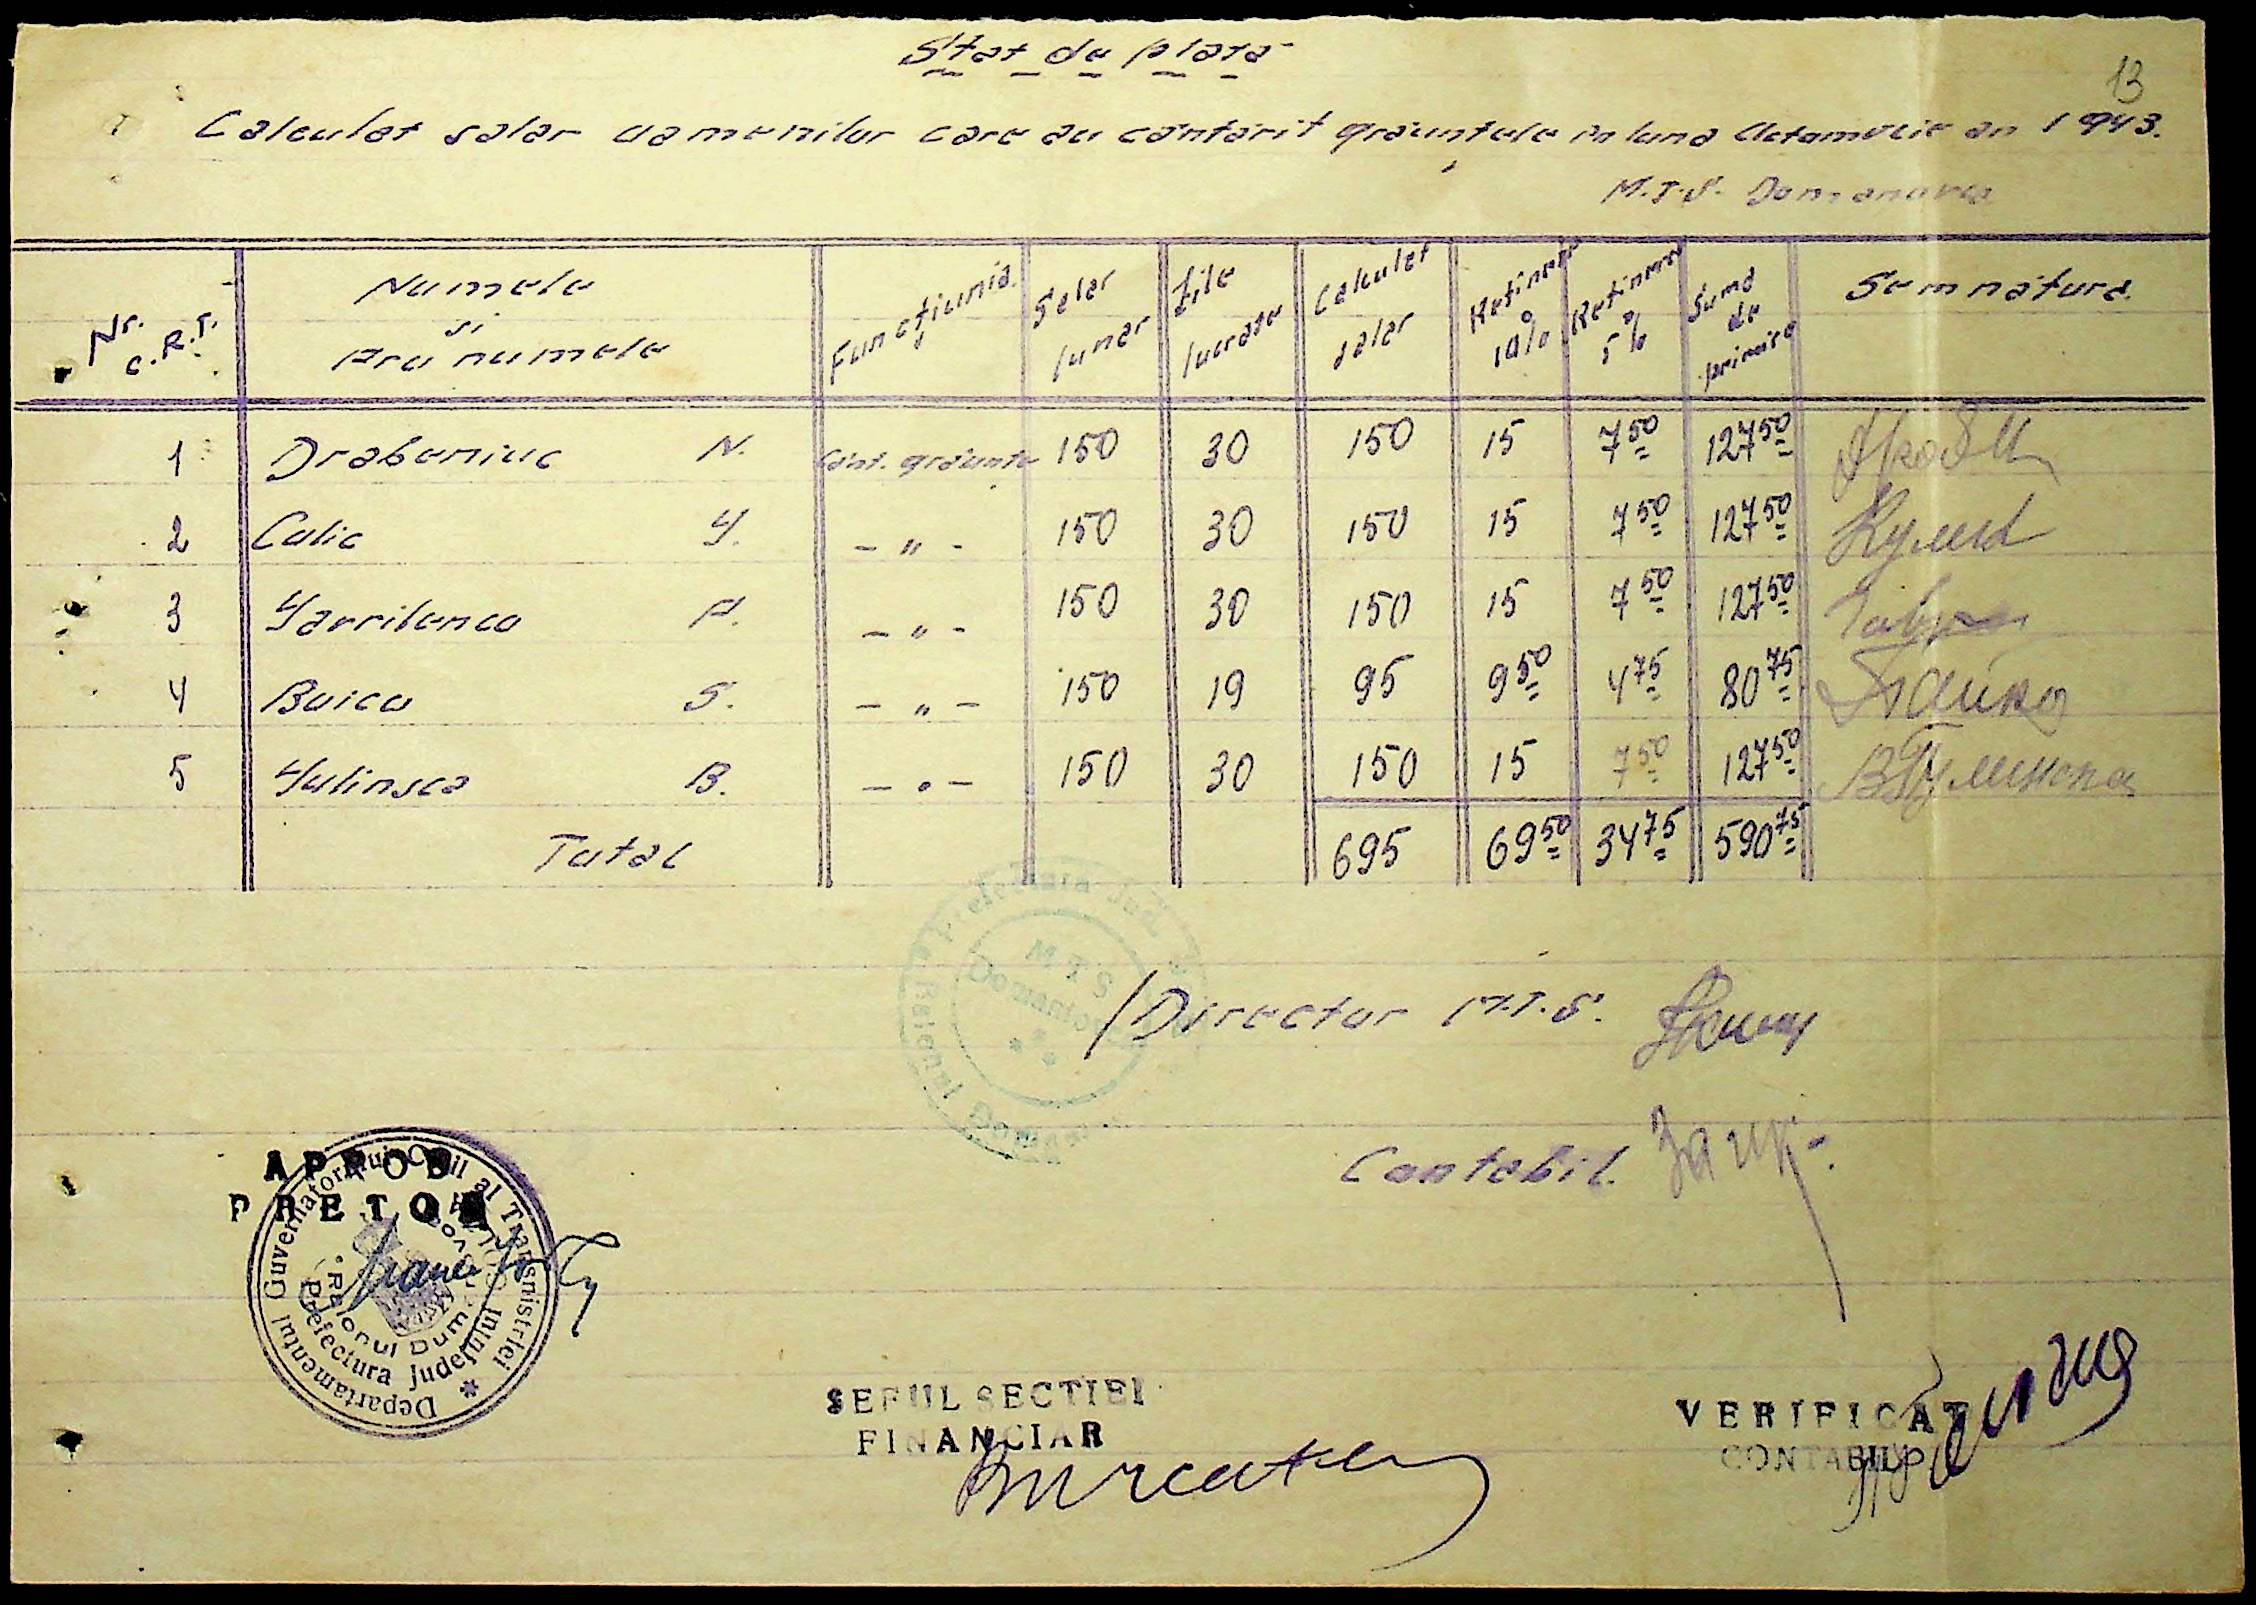 Stat de plata
13
Calculat salar oamenilor care au cântărit grăunțele în luna Octombrie an 1943.
M.T.S. Domaniovca
Nr. C.R.T. Numele și Pronumele Funcțiunia Salar lunar Zile lucrate Calculat salar Retinerea 10% Retinerea 5% Suma de primire Semnătura
1 Drobeniuc N. Cânt. grăunțe 150 30 150 15 7 50 127 50
2 Culic Y. - " - 150 30 150 15 7 50 127 50 Кулик
3 Yavrilenco P. - " - 150 30 150 15 7 50 127 50
4 Boico S. - " - 150 19 95 9 50 4 75 80 75 Бойко
5 Yulinsca B. - " - 150 30 150 15 7 50 127 50 В Гулинска
Total 695 69 50 34 75 590 75
M T S
/Director M.T.S.
Contabil.
APROB
PRETOR
Guvernatorului Civil al Transnistriei
Departamentul
Prefectura Județului
Raionul Dum
SEFUL SECTIEI
FINANCIAR
VERIFICAT
CONTABIL